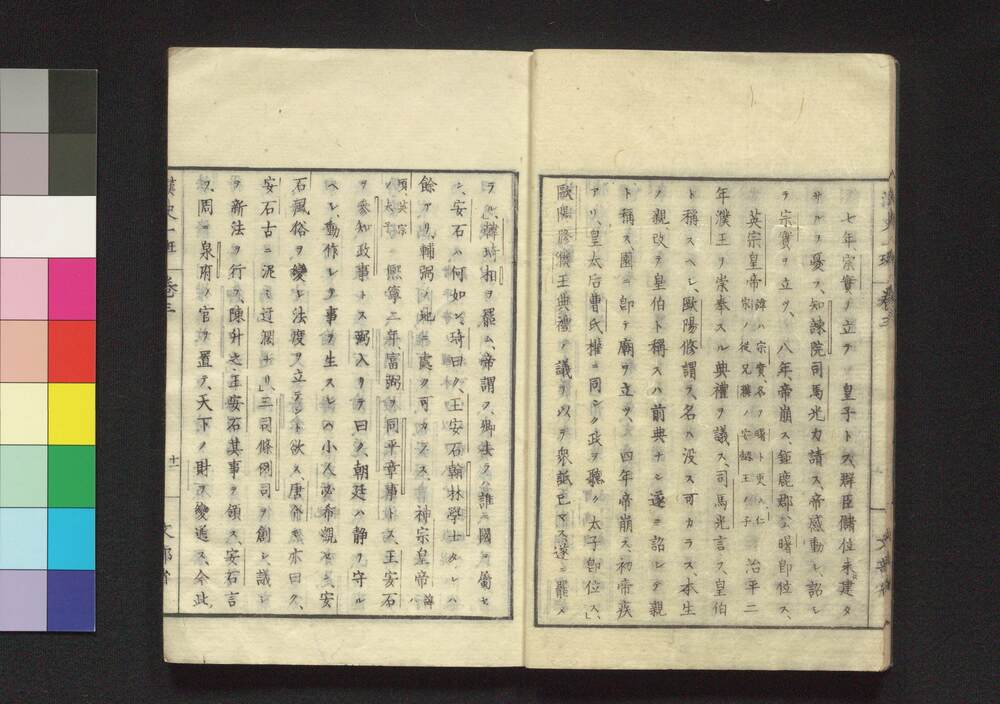 七年、宗實ヲ立テヽ皇子トス、群臣儲位未建タ
サルヲ憂フ、知諫院司馬光力請ス、帝感動シ、詔シ
テ宗實ヲ立ツ、八年帝崩ス、鉅鹿郡公曙即位ス、
英宗皇帝 諱ハ宗實、名ヲ曙ト更ム、仁宗ノ從兄濮ノ安懿王ノ子 治平二
年濮王ヲ崇奉スル典禮ヲ議ス、司馬光言フ、皇伯
ト稱スヘシ、歐陽修謂フ、名ハ没ス可カラス、本生
ノ親改テ皇伯ト稱スハ前典ナシ、遂ニ詔シテ親
ト稱ス、園ニ即テ廟ヲ立ツ、四年帝崩ス、初帝疾
アリ、皇太后曹氏權ニ同シク政ヲ聽ク、太子即位ス、
歐陽修濮王典禮ノ議ヲ以テ衆詆已マス、遂ニ罷メ
ラル、韓琦相ヲ罷ム、帝謂フ、卿去ラハ誰ニ國ヲ屬セ
ン、安石ハ何如ン、琦曰ク、王安石翰林學士タレハ
餘アリ、輔弼ノ地ニ處ク可カラス、神宗皇帝 諱ハ
頊、英宗ノ太子 熙寧二年、富弼ヲ同平章事トス、王安石
ヲ參知政事トス、弼入リテ曰ク、朝廷ハ静ヲ守ル
ヘシ、動作シテ事ヲ生スレハ小人必希覬セン、安
石風俗ヲ變シ法度ヲ立テント欲ス、唐介亦曰ク、
安石古ニ泥ミ迂濶ナリ、三司條例司ヲ創シ、議シ
テ新法ヲ行フ、陳升之王安石其事ヲ領ス、安石言
フ、周ニ泉府ノ官ヲ置テ、天下ノ財ヲ變通ス、今此
漢史一班
卷三
十一
文部省